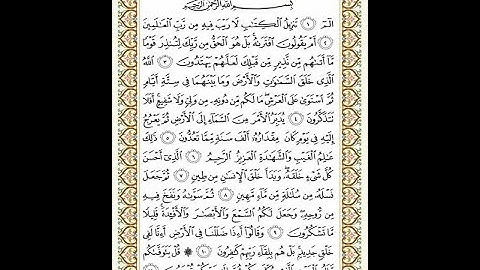 بِسْمِ ٱللَّهِ ٱلرَّحْمَٰنِ ٱلرَّحِيمِ
الٓمٓ ١ تَنزِيلُ ٱلْكِتَٰبِ لَا رَيْبَ فِيهِ مِن رَّبِّ ٱلْعَٰلَمِينَ
٢ أَمْ يَقُولُونَ ٱفْتَرَىٰهُ بَلْ هُوَ ٱلْحَقُّ مِن رَّبِّكَ لِتُنذِرَ قَوْمًا
مَّآ أَتَىٰهُم مِّن نَّذِيرٍ مِّن قَبْلِكَ لَعَلَّهُمْ يَهْتَدُونَ ٣ ٱللَّهُ
ٱلَّذِى خَلَقَ ٱلسَّمَٰوَٰتِ وَٱلْأَرْضَ وَمَا بَيْنَهُمَا فِى سِتَّةِ أَيَّامٍ
ثُمَّ ٱسْتَوَىٰ عَلَى ٱلْعَرْشِ مَا لَكُم مِّن دُونِهِۦ مِن وَلِىٍّ وَلَا شَفِيعٍ أَفَلَا
تَتَذَكَّرُونَ ٤ يُدَبِّرُ ٱلْأَمْرَ مِنَ ٱلسَّمَآءِ إِلَى ٱلْأَرْضِ ثُمَّ يَعْرُجُ
إِلَيْهِ فِى يَوْمٍ كَانَ مِقْدَارُهُۥٓ أَلْفَ سَنَةٍ مِّمَّا تَعُدُّونَ ٥ ذَٰلِكَ
عَٰلِمُ ٱلْغَيْبِ وَٱلشَّهَٰدَةِ ٱلْعَزِيزُ ٱلرَّحِيمُ ٦ ٱلَّذِىٓ أَحْسَنَ
كُلَّ شَىْءٍ خَلَقَهُۥ وَبَدَأَ خَلْقَ ٱلْإِنسَٰنِ مِن طِينٍ ٧ ثُمَّ جَعَلَ
نَسْلَهُۥ مِن سُلَٰلَةٍ مِّن مَّآءٍ مَّهِينٍ ٨ ثُمَّ سَوَّىٰهُ وَنَفَخَ فِيهِ
مِن رُّوحِهِۦ وَجَعَلَ لَكُمُ ٱلسَّمْعَ وَٱلْأَبْصَٰرَ وَٱلْأَفْـِٔدَةَ قَلِيلًا
مَّا تَشْكُرُونَ ٩ وَقَالُوٓا۟ أَءِذَا ضَلَلْنَا فِى ٱلْأَرْضِ أَءِنَّا لَفِى
خَلْقٍ جَدِيدٍۭ بَلْ هُم بِلِقَآءِ رَبِّهِمْ كَٰفِرُونَ ١٠ ۞ قُلْ يَتَوَفَّىٰكُم